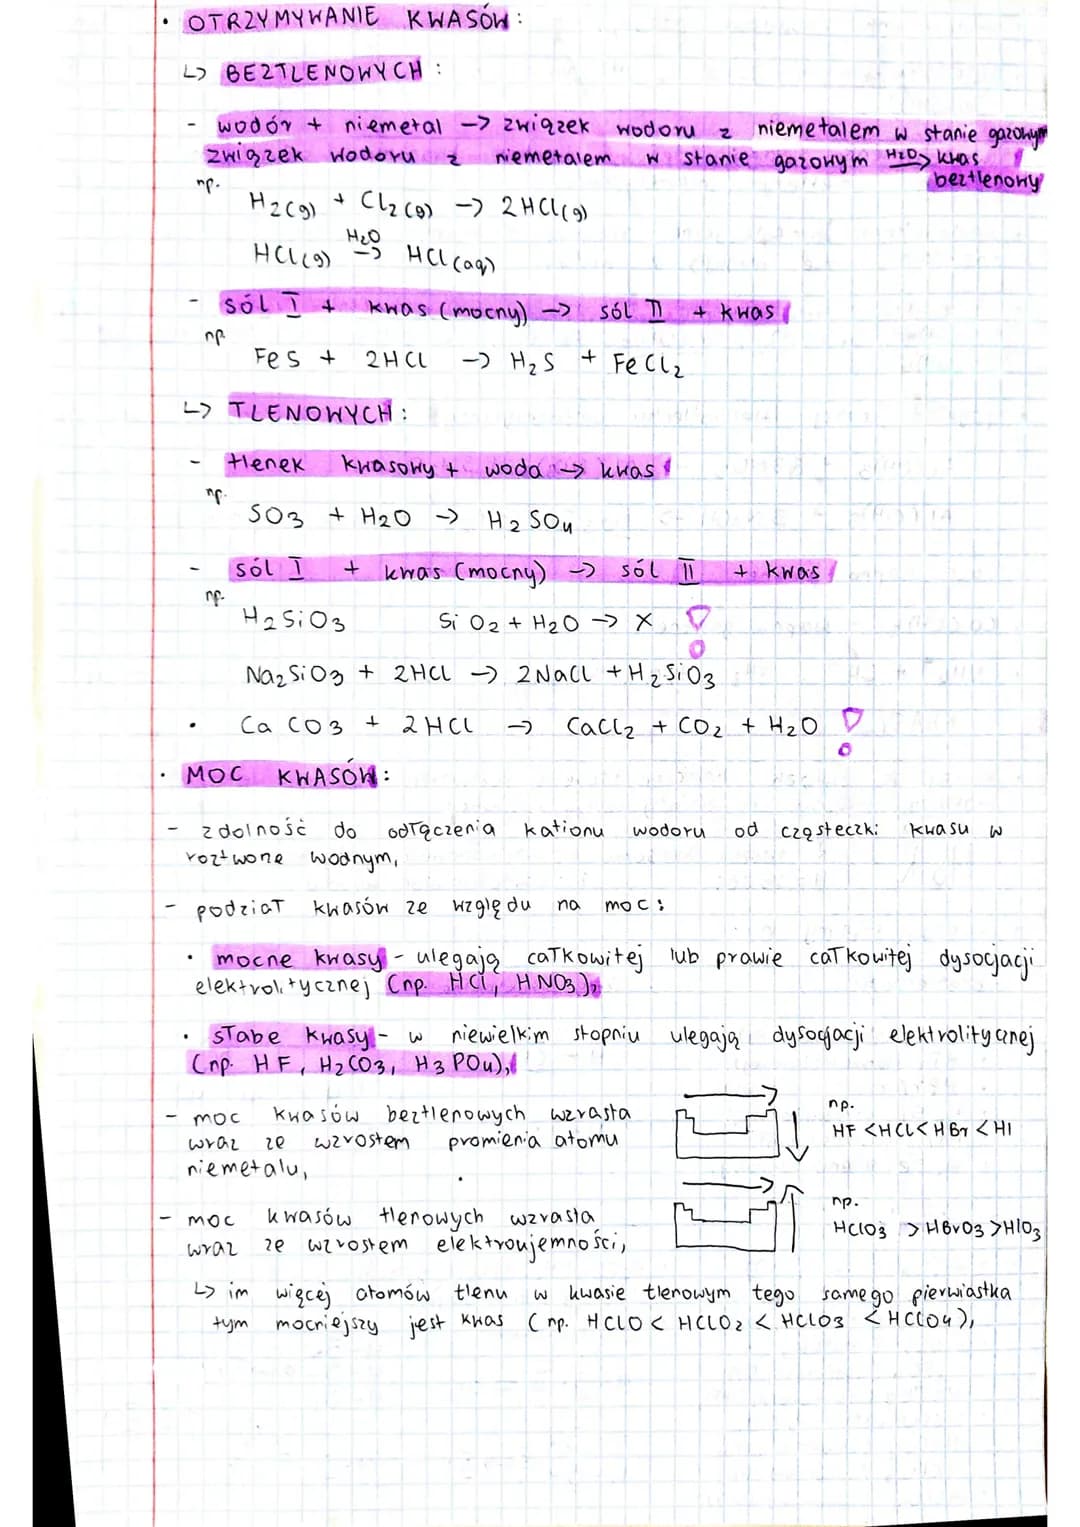 • OTRZYMYWANIE KWASÓW:
↳ BEZTLENOWYCH:
- wodór + niemetal → związek wodoru z niemetalem w stanie gazowym
związek wodoru z niemetalem w stanie gazowym H2O→ kwas
beztlenowy
np.
H2(g) + Cl2(g) → 2HCl(g)
HCl(g) H2O→ HCl(aq)
- sól I + kwas (mocny) → sól II + kwas
np
FeS + 2HCl → H2S + FeCl2
↳ TLENOWYCH:
- tlenek kwasowy + woda → kwas
np.
SO3 + H2O → H2SO4
- sól I + kwas (mocny) → sól II + kwas
np.
H2SiO3 SiO2 + H2O → X !
Na2SiO3 + 2HCl → 2NaCl + H2SiO3
• CaCO3 + 2HCl → CaCl2 + CO2 + H2O !
• MOC KWASÓW:
- zdolność do odłączenia kationu wodoru od cząsteczki kwasu w
roztworze wodnym,
- podział kwasów ze względu na moc:
• mocne kwasy - ulegają całkowitej lub prawie całkowitej dysocjacji
elektrolitycznej (np. HCl, HNO3),
• słabe kwasy - w niewielkim stopniu ulegają dysocjacji elektrolitycznej
(np. HF, H2CO3, H3PO4),
- moc kwasów beztlenowych wzrasta
wraz ze wzrostem promienia atomu
niemetalu,
np.
HF < HCl < HBr < HI
- moc kwasów tlenowych wzrasta
wraz ze wzrostem elektroujemności,
np.
HClO3 > HBrO3 > HIO3
↳ im więcej atomów tlenu w kwasie tlenowym tego samego pierwiastka
tym mocniejszy jest kwas (np. HClO < HClO2 < HClO3 < HClO4),